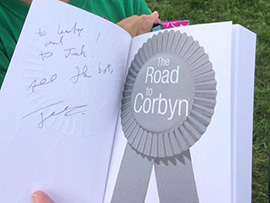 to
and
to
all the best,
The
Road
to
Corbyn